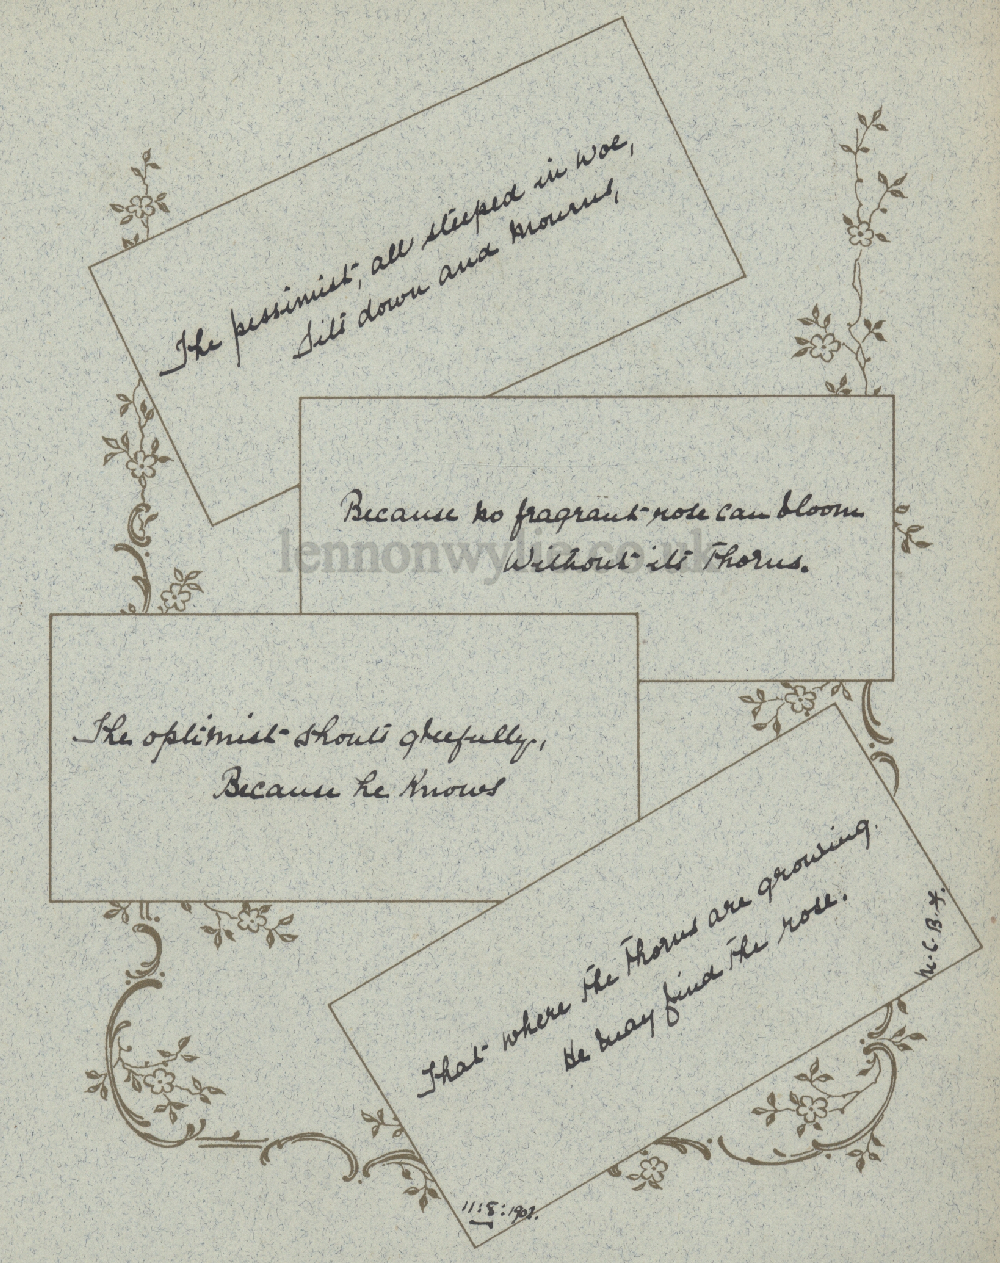 The pessimist, all steeped in woe,
Sits down and mourns,
Because no fragrant rose can bloom
Without its thorns.
lennonwylie.co.uk
The optimist shouts gleefully,
Because he knows
That where the thorns are growing
He may find the rose.
M.C.B.F.
11:8:1902.